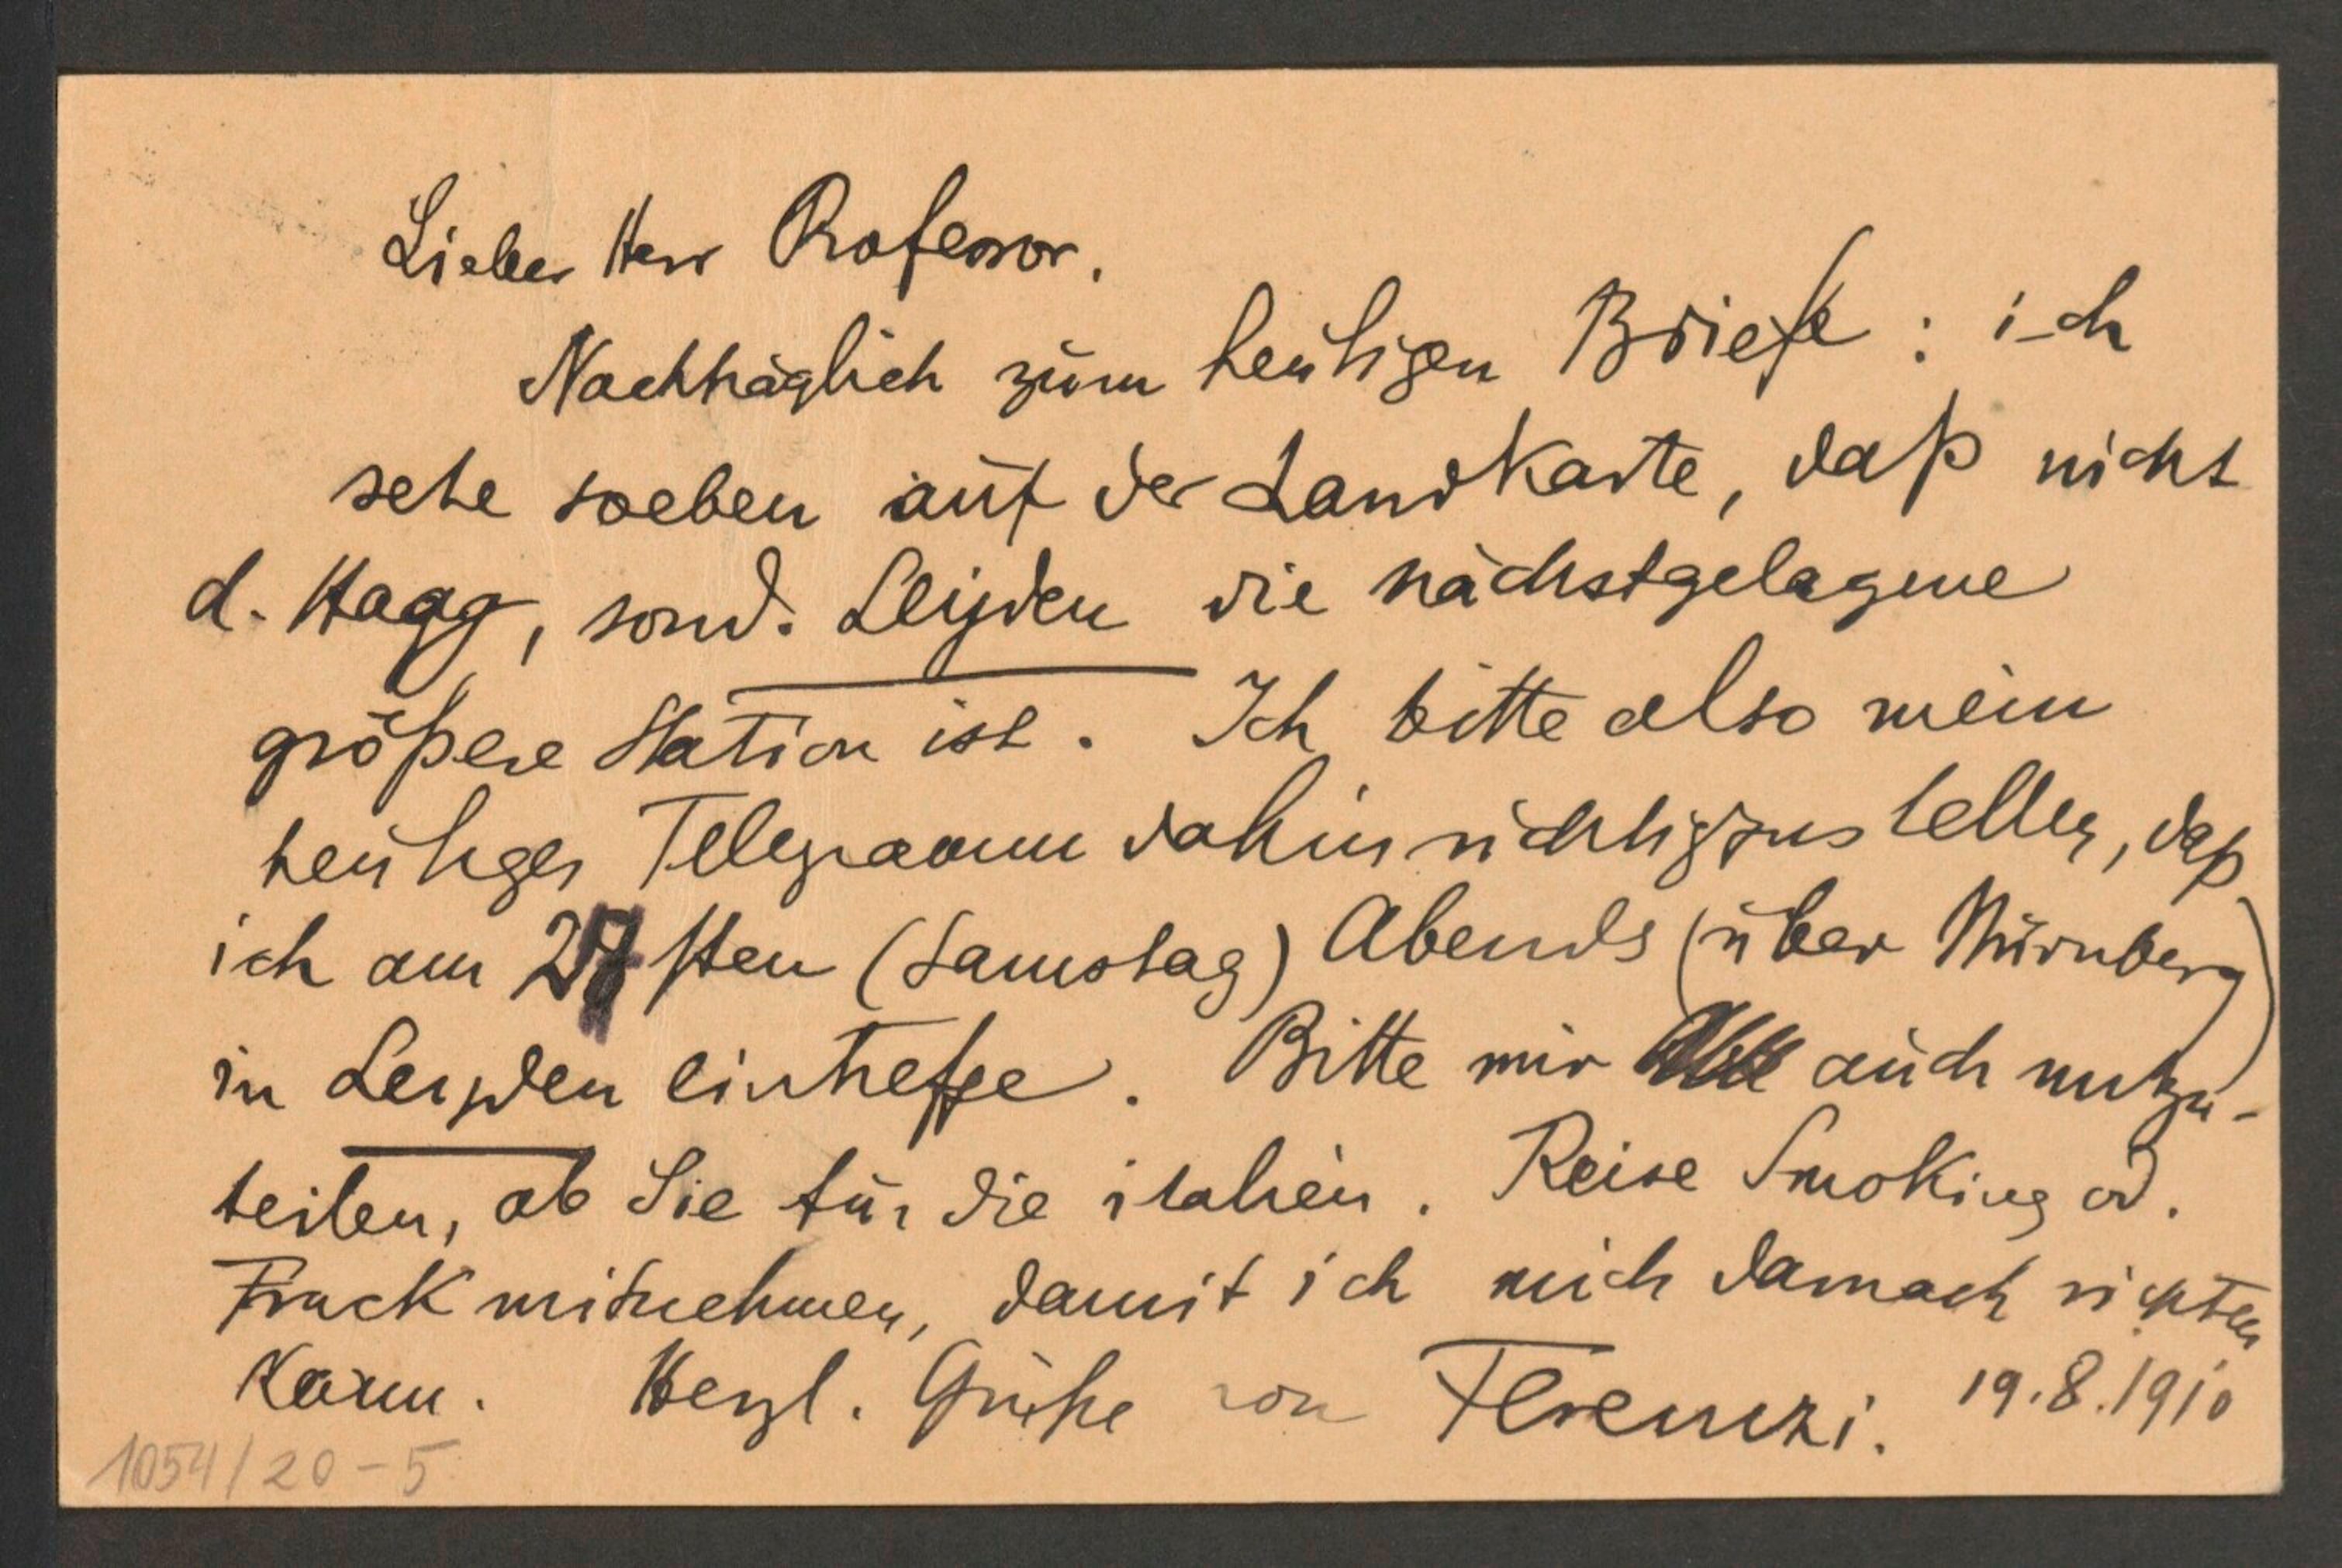 Lieber Herr Professor.
Nachträglich zum heutigen Briefe : ich
sehe soeben auf der Landkarte, daß nicht
d. Haag, sond. Leijden die nächstgelegene
größere Station ist. Ich bitte also mein
heutiges Telegramm dahin richtigzustellen, daß
ich am 27 sten (Samstag) Abends (über Nürnberg)
in Leyden eintreffe. Bitte mir auch mitzu-
teilen, ob Sie für die italien. Reise Smoking od.
Frack mitnehmen, damit ich mich darnach richten
kann. Herzl. Grüße von Ferenczi. 19.8.1910
1054/20-5